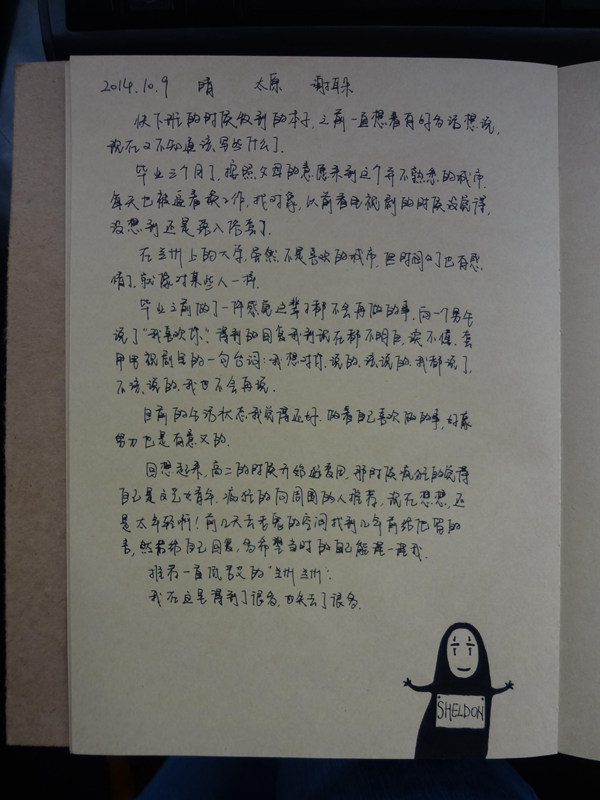 2014.10.9 晴 太原 谢耳朵
快下班的时候收到的本子,之前一直想着有好多话想说,
现在又不知道该写些什么了。
毕业三个月了,按照父母的意愿来到这个并不熟悉的城市,
每天也被逼着找工作,找对象,以前看电视剧的时候没觉得,
没想到还是落入俗套了。
在兰州上的大学,虽然不是喜欢的城市,但时间久了也有感
情了,就像对某些人一样。
毕业之前做了一件感觉这辈子都不会再做的事,向一个男生
说了“我喜欢你”,得到的回复我到现在都不明白,读不懂。套
用电视剧里的一句台词:我想对你说的,该说的,我都说了,
不该说的,我也不会再说。
目前的生活状态我觉得还好,做着自己喜欢做的事,好像
努力也是有意义的。
回想起来,高二的时候开始逛豆瓣,那时候疯狂的觉得
自己是文艺女青年,疯狂的向周围的人推荐,现在想想,还
是太年轻啊!前几天去的空间找到几年前给他写的
书,然后给自己回复,多希望当时的自己能理一理我。
推荐一首低苦艾的“兰州兰州”:
我在这里得到了很多,也失去了很多。
SHELDON